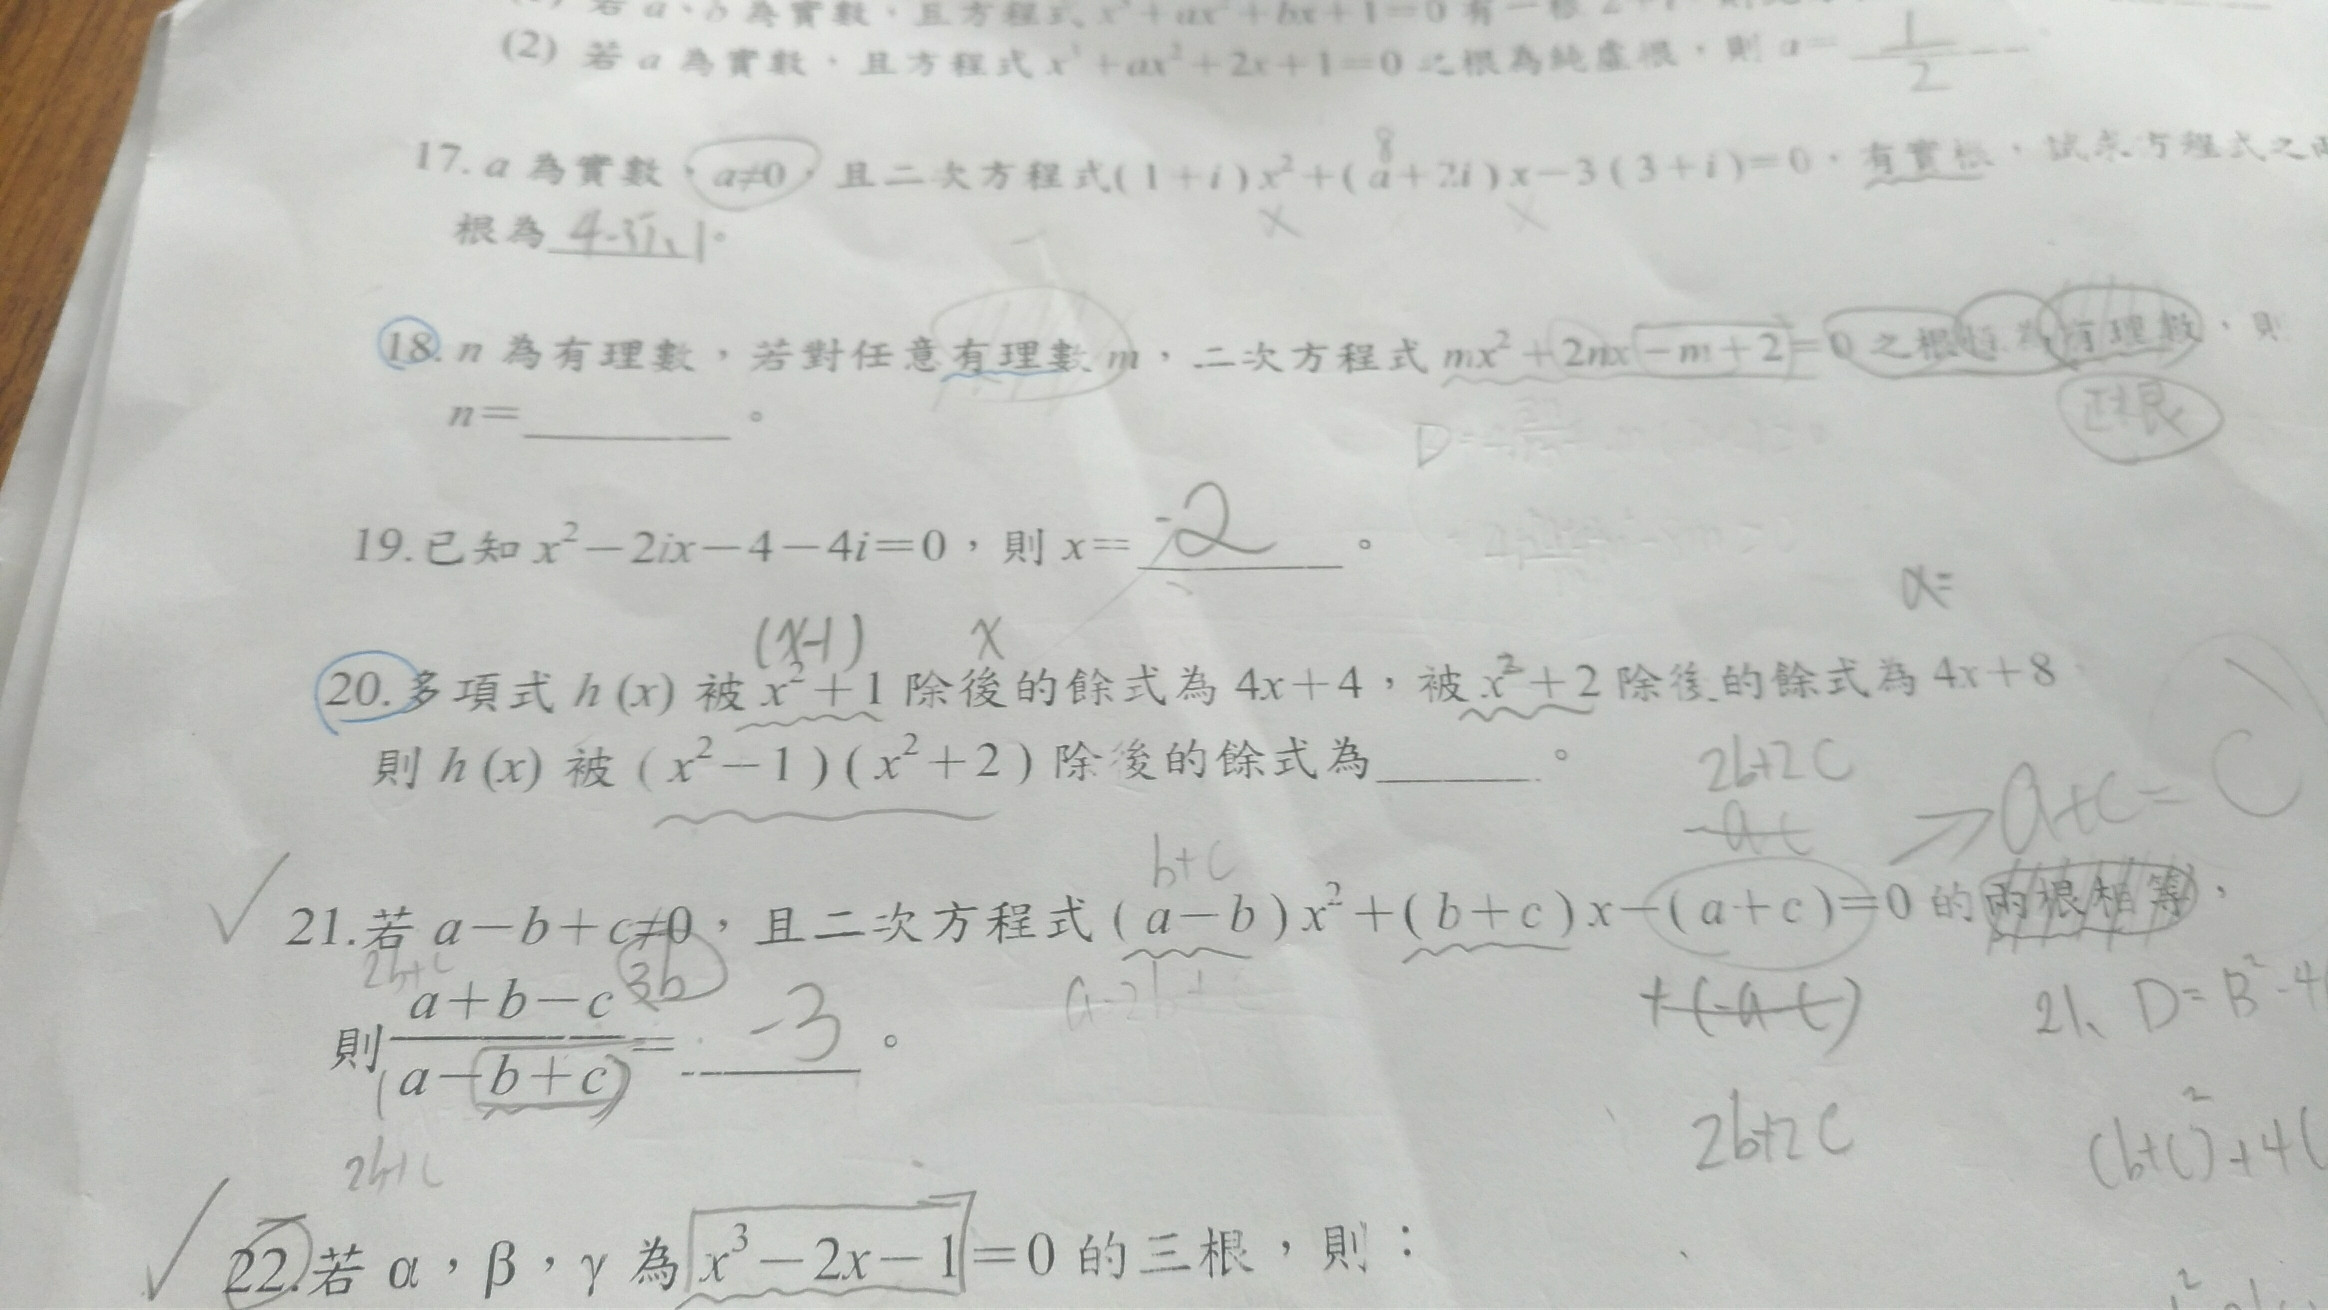 若 a、b 為實數,且方程式 x³+ax²+bx+1=0 有一根
(2) 若 a 為實數,且方程式 x³+ax²+2x+1=0 之根為純虛根,則 a= 1/2
8
17. a 為實數,a≠0,且二次方程式(1+i)x²+(a+2i)x−3(3+i)=0,有實根,試求方程式之兩
x x
根為 4-3i、1。
18. n 為有理數,若對任意有理數 m,二次方程式 mx²+2nx−m+2=0 之根恆為有理數,則
n=______。
D=
19.已知 x²−2ix−4−4i=0,則 x= -2 。
x=
(x-1) x
20.多項式 h(x) 被 x²+1 除後的餘式為 4x+4,被 x²+2 除後的餘式為 4x+8
則 h(x) 被 (x²−1)(x²+2) 除後的餘式為______。
2b+2c
-a-c
a+c= c
b+c
21.若 a−b+c≠0,且二次方程式 (a−b)x²+(b+c)x−(a+c)=0 的兩根相等,
2b+c
3b
a-2b+c
+(-a-c)
21、D=B²-4
則 (a+b−c)/(a−b+c) = -3 。
2b+c
2b+2c
(b+c)²+4(
22.若 α,β,γ 為 x³−2x−1=0 的三根,則: